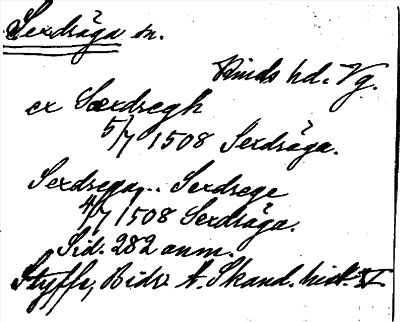 Sexdräga sn.
Kinds hd. Vg.
ex Sæxdregh
5/7 1508 Sexdräga.
Sexdrega.. Sexdrege
4/7 1508 Sexdräga.
Sid. 282 anm.
Styffe, Bidr t. Skand. hist. V